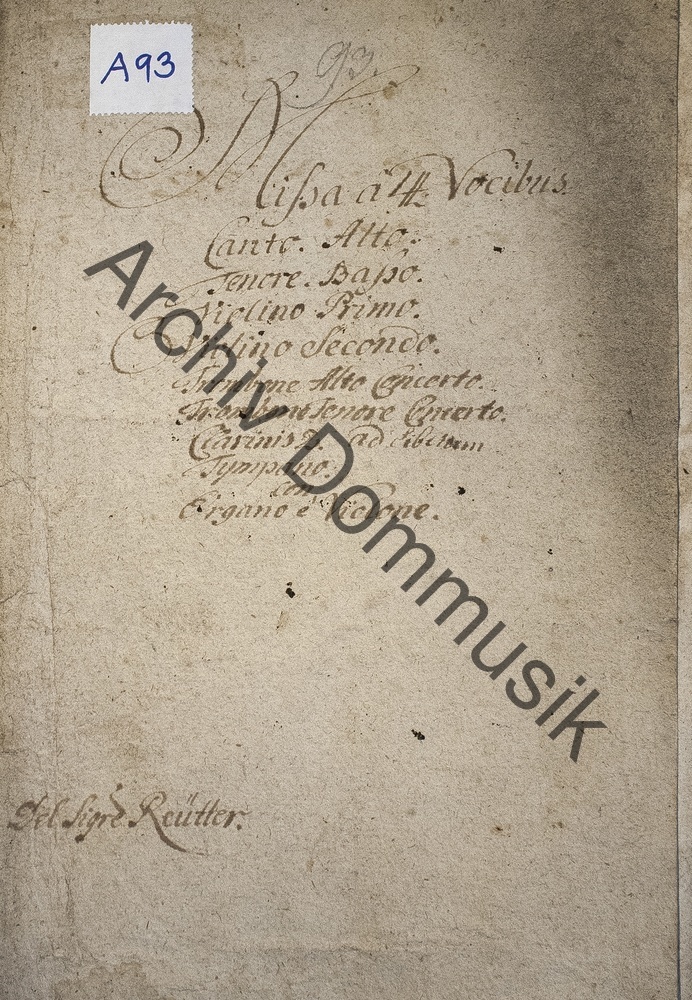 A93
93.
Missa à 4. Vocibus.
Canto. Alto.
Tenore. Basso.
Violino Primo.
Violino Secondo.
Trombone Alto Concerto.
Trombone Tenore Concerto.
Clarinis 2. ad libitum
Tympano.
con
Organo è Violone.
Archiv Dommusik
Del Sigre Reütter.